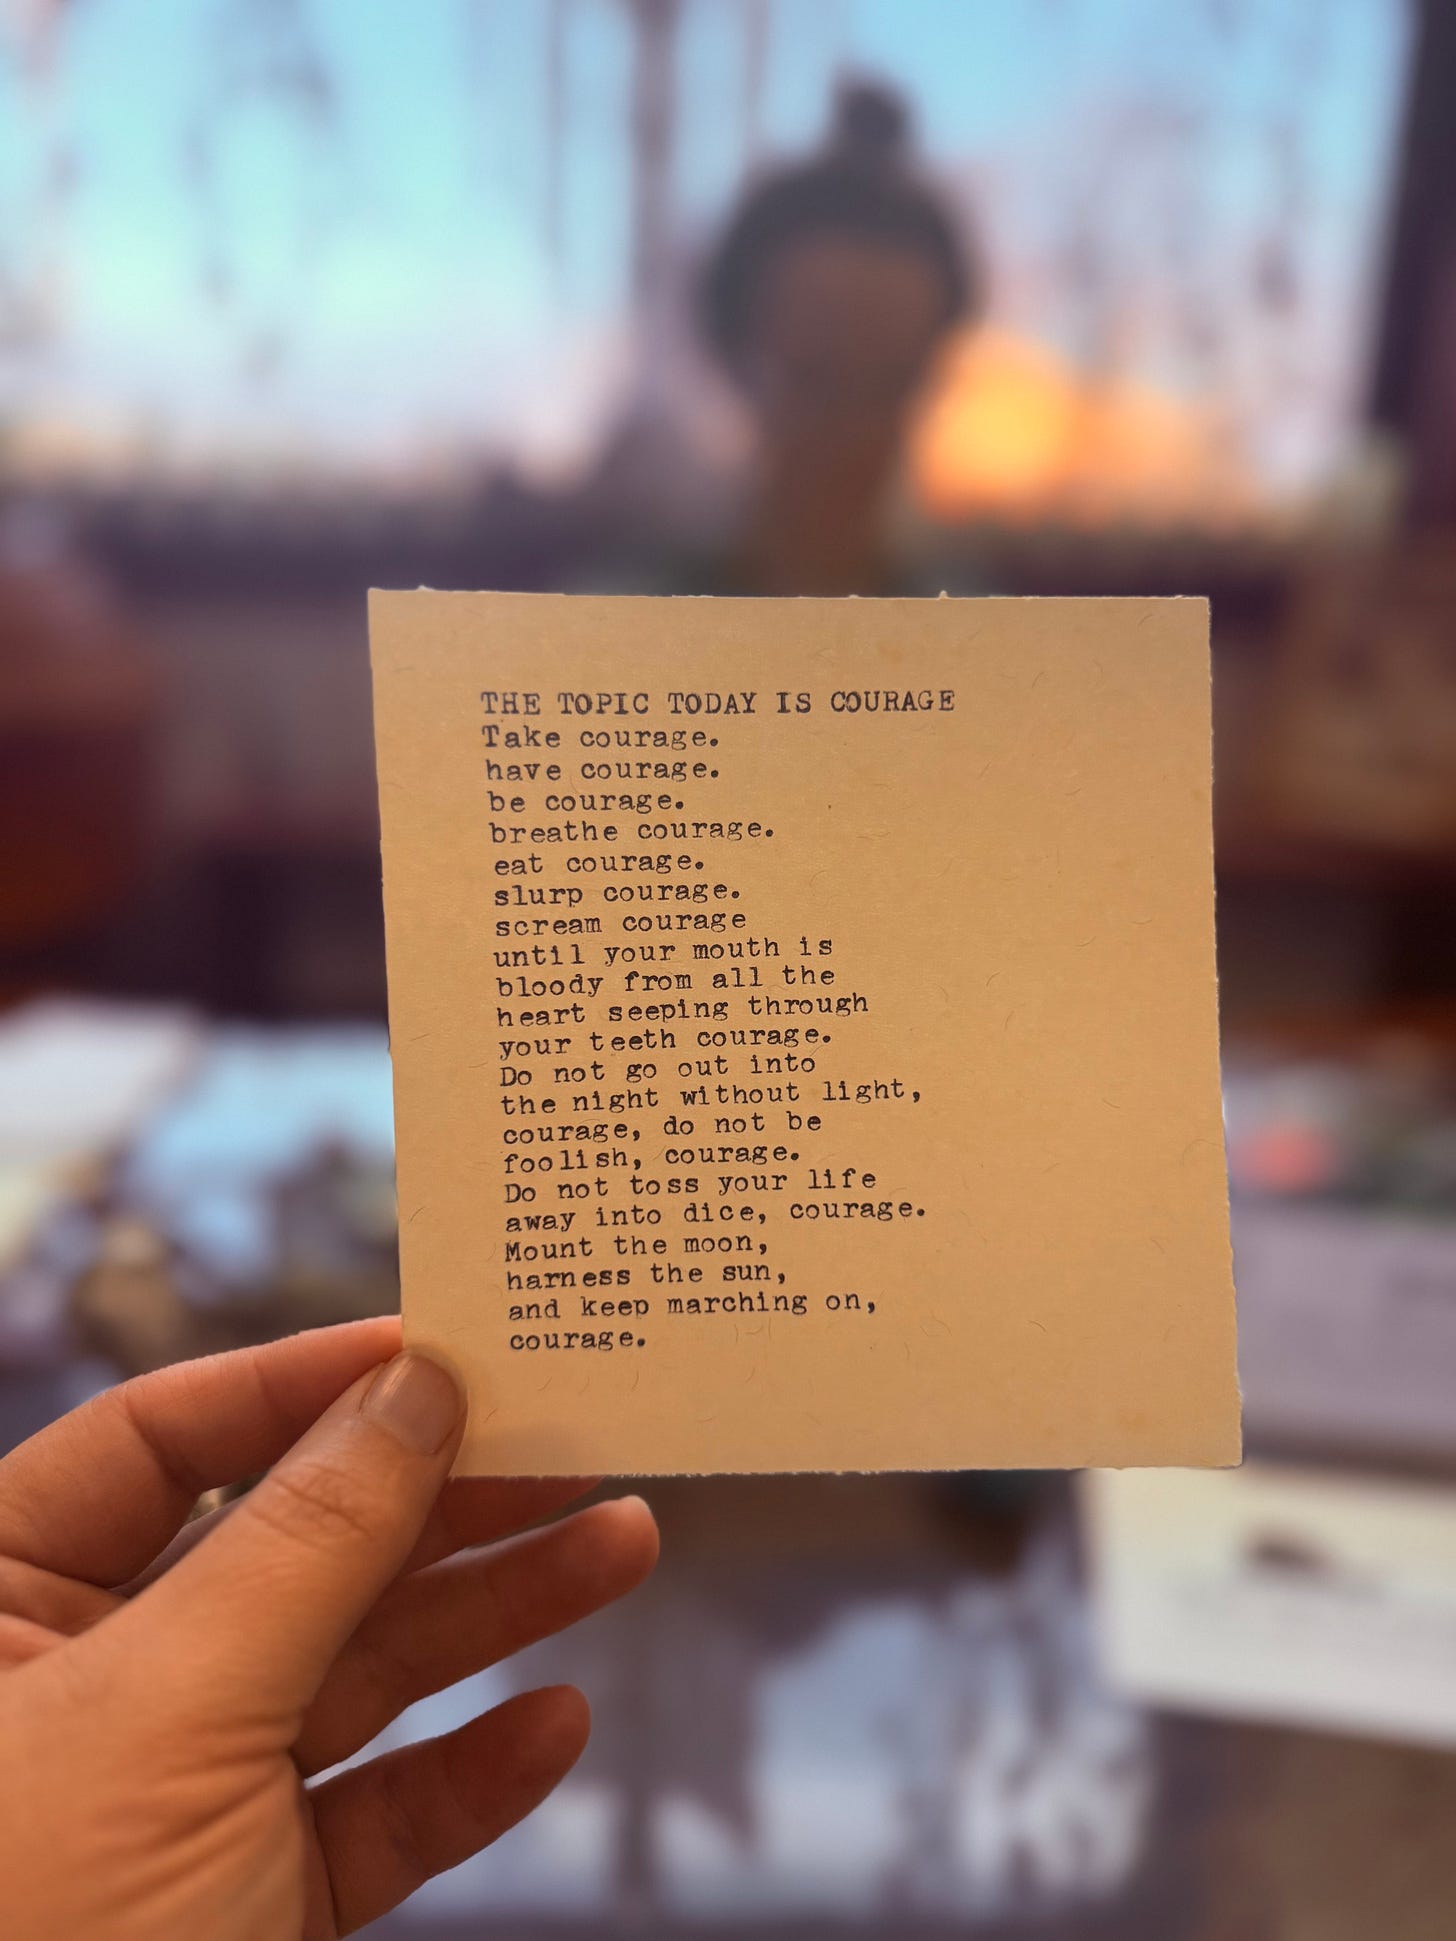 THE TOPIC TODAY IS COURAGE
Take courage.
have courage.
be courage.
breathe courage.
eat courage.
slurp courage.
scream courage
until your mouth is
bloody from all the
heart seeping through
your teeth courage.
Do not go out into
the night without light,
courage, do not be
foolish, courage.
Do not toss your life
away into dice, courage.
Mount the moon,
harness the sun,
and keep marching on,
courage.